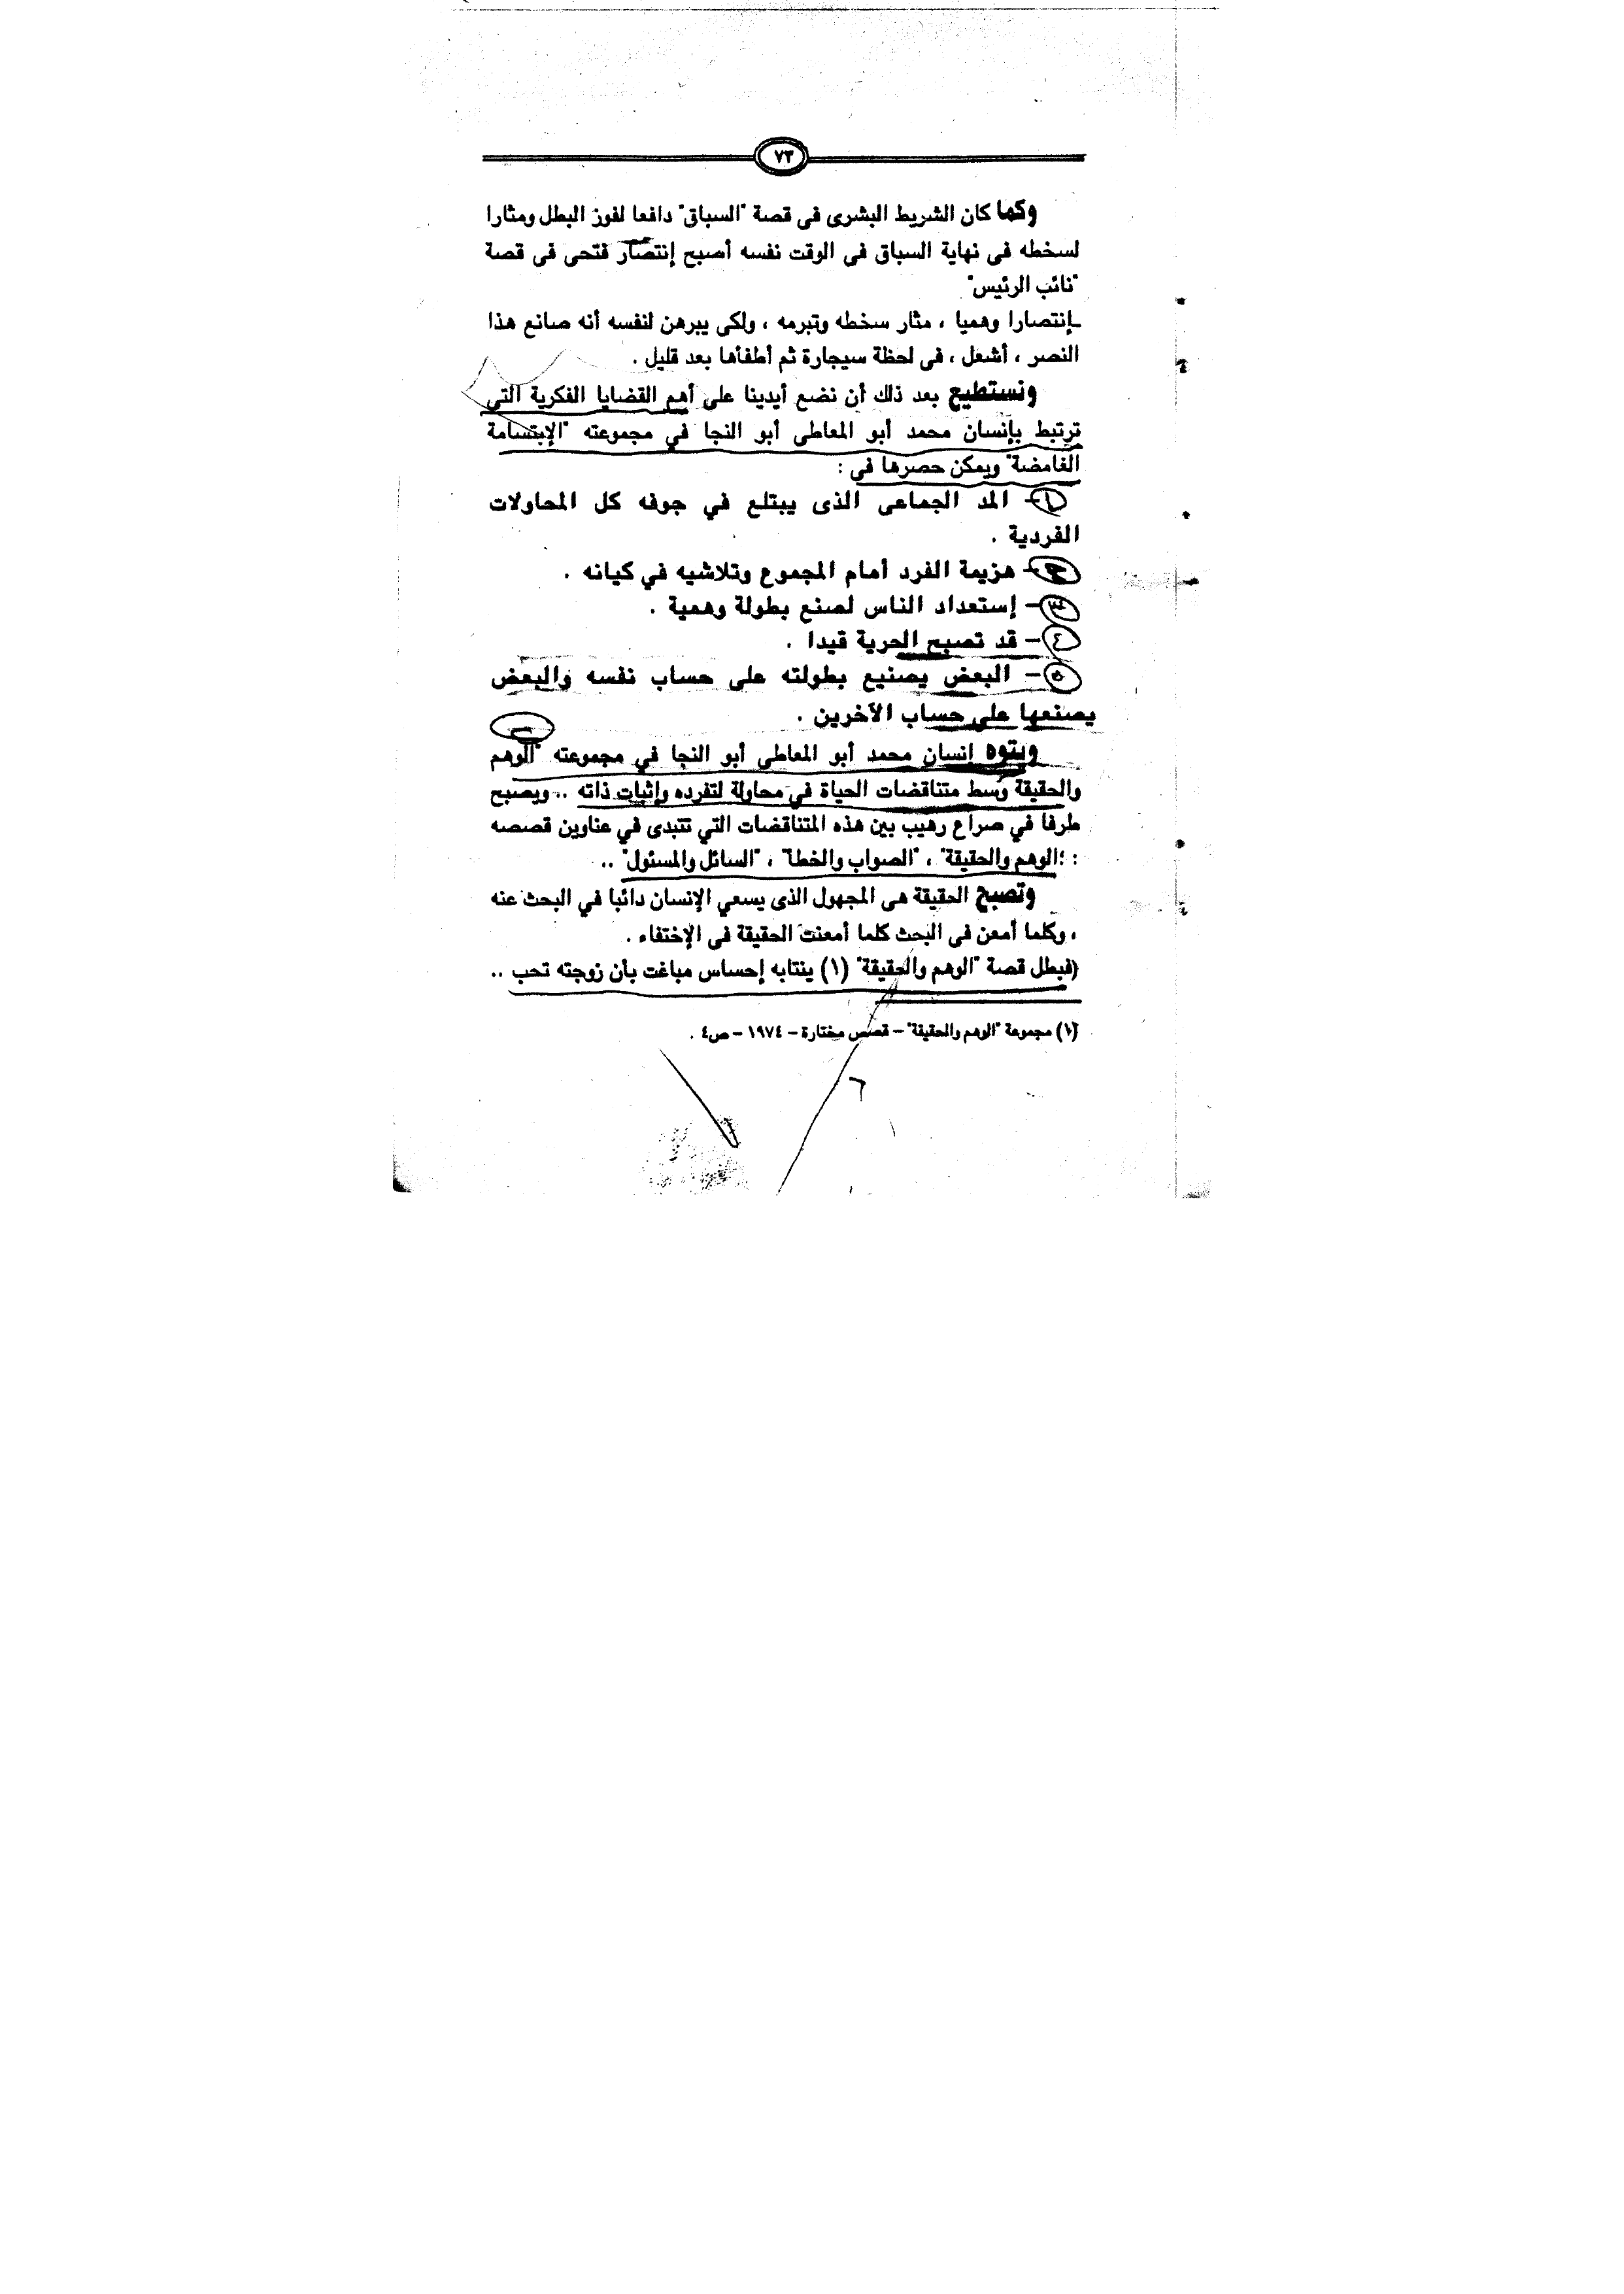 ٧٣
وكما كان الشريط البشرى فى قصة "السباق" دافعا لفوز البطل ومثارا
لسخطه فى نهاية السباق فى الوقت نفسه أصبح إنتصار فتحى فى قصة
"نائب الرئيس"
إنتصارا وهميا ، مثار سخطه وتبرمه ، ولكى يبرهن لنفسه أنه صانع هذا
النصر ، أشعل ، فى لحظة سيجارة ثم أطفأها بعد قليل .
ونستطيع بعد ذلك أن نضع أيدينا على أهم القضايا الفكرية التى
ترتبط بإنسان محمد أبو المعاطى أبو النجا في مجموعته "الإبتسامة
الغامضة" ويمكن حصرها في :
١- المد الجماعى الذى يبتلع في جوفه كل المحاولات
الفردية .
٢- هزيمة الفرد أمام المجموع وتلاشيه في كيانه .
٣- إستعداد الناس لصنع بطولة وهمية .
٤- قد تصبح الحرية قيدا .
٥- البعض يصنيع بطولته على حساب نفسه والبعض
يصنعها على حساب الآخرين .
ويتوه إنسان محمد أبو المعاطى أبو النجا في مجموعته "الوهم
والحقيقة وسط متناقضات الحياة في محاولة لتفرده وإثبات ذاته .. ويصبح
طرفا في صراع رهيب بين هذه المتناقضات التي تتبدى في عناوين قصصه
: "الوهم والحقيقة" ، "الصواب والخطا" ، "السائل والمسئول" ..
وتصبح الحقيقة هى المجهول الذى يسعي الإنسان دائبا في البحث عنه
، وكلما أمعن فى البحث كلما أمعنت الحقيقة فى الإختفاء .
(فبطل قصة "الوهم والحقيقة" (١) ينتابه إحساس مباغت بأن زوجته تحب ..
(١) مجموعة "الوهم والحقيقة" - قصص مختارة - ١٩٧٤ - ص٤ .
٦